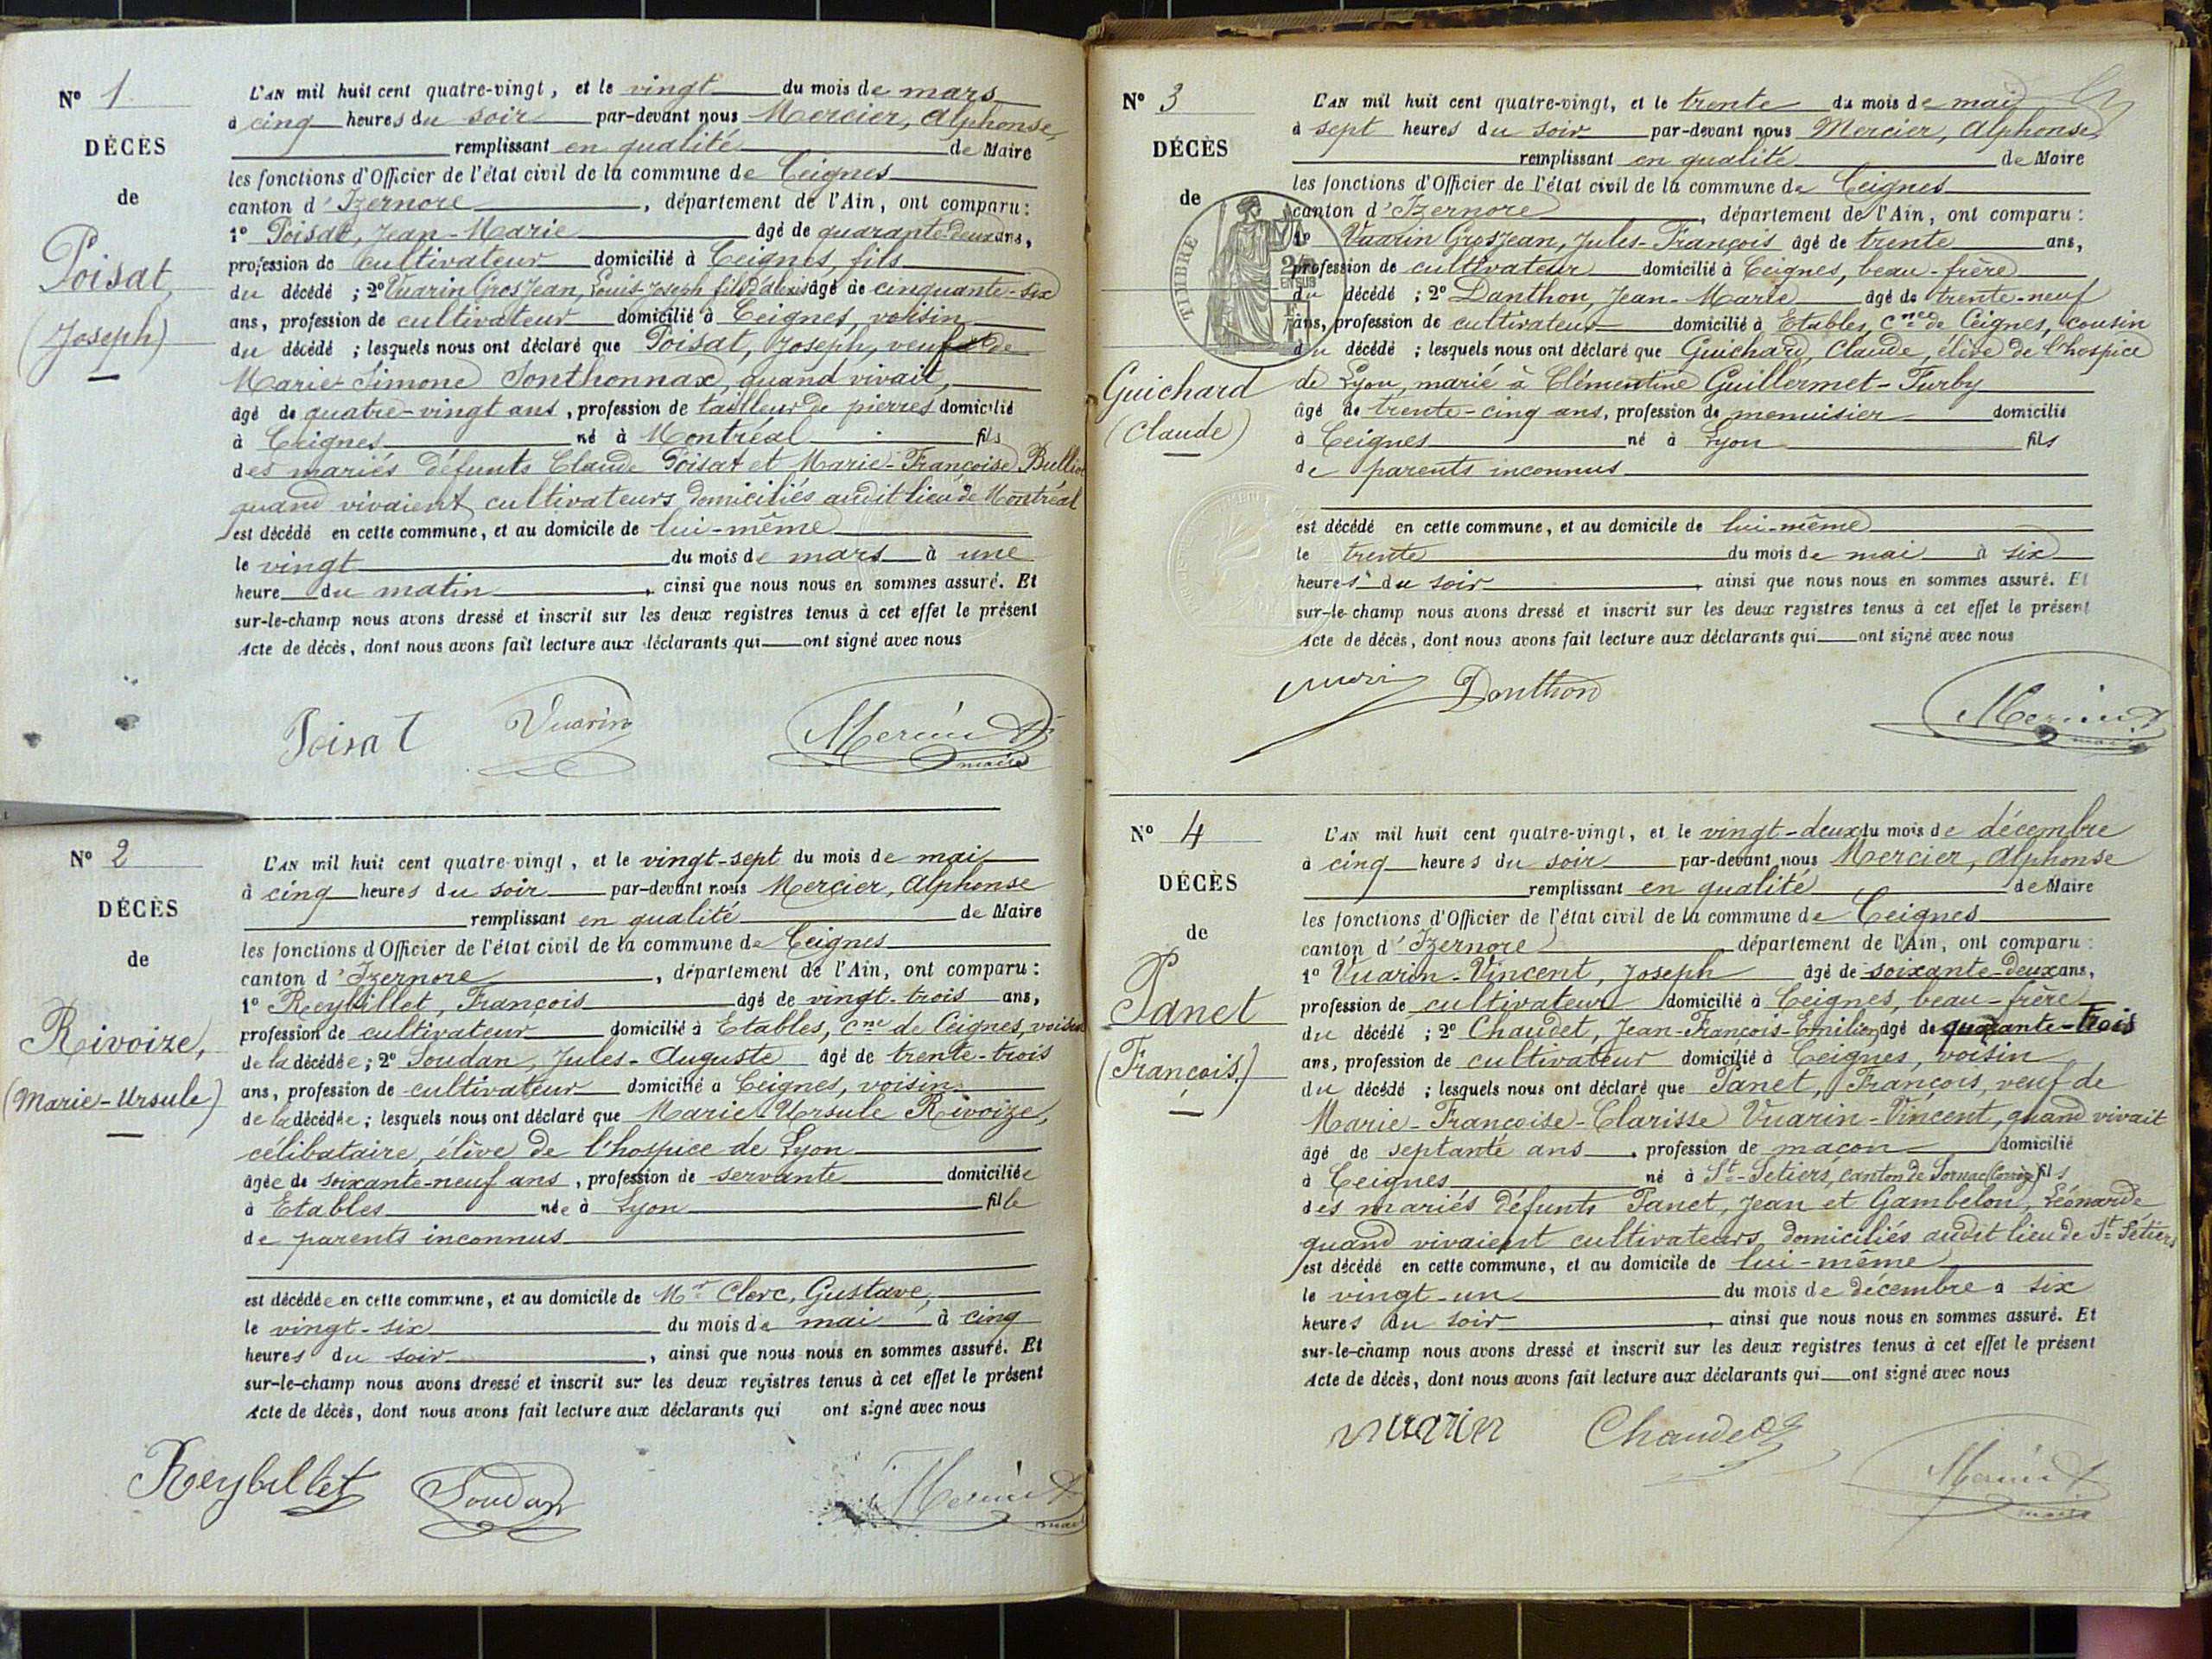 N° 1
DÉCÈS
de
Poisat,
(Joseph)
L'AN mil huit cent quatre-vingt, et le vingt du mois de mars
à cinq heures du soir par-devant nous Mercier, Alphonse,
remplissant en qualité de Maire
les fonctions d'Officier de l'état civil de la commune de Ceignes
canton d'Izernore, département de l'Ain, ont comparu :
1° Poisat, Jean-Marie âgé de quarante-deux ans,
profession de cultivateur domicilié à Ceignes, fils
du décédé ; 2° Vuarin Grosjean, Louis-Joseph fils d'alexis âgé de cinquante-six
ans, profession de cultivateur domicilié à Ceignes, voisin
du décédé ; lesquels nous ont déclaré que Poisat, Joseph, veuf de
Marie-Simone Sonthonnax, quand vivait,
âgé de quatre-vingt ans, profession de tailleur de pierres domicilié
à Ceignes né à Montréal fils
des mariés défunts Claude Poisat et Marie-Françoise
quand vivaient cultivateurs domiciliés audit lieu de Montréal
est décédé en cette commune, et au domicile de lui-même
le vingt du mois de mars à une
heure du matin, ainsi que nous nous en sommes assuré. Et
sur-le-champ nous avons dressé et inscrit sur les deux registres tenus à cet effet le présent
Acte de décès, dont nous avons fait lecture aux déclarants qui ont signé avec nous
Poisat Vuarin Mercier A
maire
N° 2
DÉCÈS
de
Rivoize,
(Marie-Ursule)
L'AN mil huit cent quatre-vingt, et le vingt-sept du mois de mai
à cinq heures du soir par-devant nous Mercier, Alphonse
remplissant en qualité de Maire
les fonctions d'Officier de l'état civil de la commune de Ceignes
canton d'Izernore, département de l'Ain, ont comparu :
1° Reybillet, François âgé de vingt-trois ans,
profession de cultivateur domicilié à Etables, cne de Ceignes, voisin
de la décédée ; 2° Soudan, Jules-Auguste âgé de trente-trois
ans, profession de cultivateur domicilié à Ceignes, voisin
de la décédée ; lesquels nous ont déclaré que Marie-Ursule Rivoize,
célibataire, élève de l'hospice de Lyon
âgée de soixante-neuf ans, profession de servante domiciliée
à Etables née à Lyon fille
de parents inconnus
est décédée en cette commune, et au domicile de Mr Clerc, Gustave,
le vingt-six du mois de mai à cinq
heures du soir, ainsi que nous nous en sommes assuré. Et
sur-le-champ nous avons dressé et inscrit sur les deux registres tenus à cet effet le présent
Acte de décès, dont nous avons fait lecture aux déclarants qui ont signé avec nous
Reybillet Soudan Mercier A
maire
N° 3
DÉCÈS
de
TIMBRE
Guichard
(Claude)
L'AN mil huit cent quatre-vingt, et le trente du mois de mai
à sept heures du soir par-devant nous Mercier, Alphonse,
remplissant en qualité de Maire
les fonctions d'Officier de l'état civil de la commune de Ceignes
canton d'Izernore, département de l'Ain, ont comparu :
1° Vuarin Grosjean, Jules-François âgé de trente ans,
profession de cultivateur domicilié à Ceignes, beau-frère
du décédé ; 2° Danthon, Jean-Marie âgé de trente-neuf
ans, profession de cultivateur domicilié à Etables, cne de Ceignes, cousin
du décédé ; lesquels nous ont déclaré que Guichard, Claude, élève de l'hospice
de Lyon, marié à Clémentine Guillermet-Furby
âgé de trente-cinq ans, profession de menuisier domicilié
à Ceignes né à Lyon fils
de parents inconnus
est décédé en cette commune, et au domicile de lui-même
le trente du mois de mai à six
heures du soir, ainsi que nous nous en sommes assuré. Et
sur-le-champ nous avons dressé et inscrit sur les deux registres tenus à cet effet le présent
Acte de décès, dont nous avons fait lecture aux déclarants qui ont signé avec nous
Vuarin Donthon Mercier A
maire
N° 4
DÉCÈS
de
Panet
(François)
L'AN mil huit cent quatre-vingt, et le vingt-deux du mois de décembre
à cinq heures du soir par-devant nous Mercier, Alphonse
remplissant en qualité de Maire
les fonctions d'Officier de l'état civil de la commune de Ceignes
canton d'Izernore département de l'Ain, ont comparu :
1° Vuarin-Vincent, Joseph âgé de soixante-deux ans,
profession de cultivateur domicilié à Ceignes, beau-frère
du décédé ; 2° Chaudet, Jean-François-Emilien, âgé de quarante-trois
ans, profession de cultivateur domicilié à Ceignes, voisin
du décédé ; lesquels nous ont déclaré que Panet, François, veuf de
Marie-Françoise-Clarisse Vuarin-Vincent, quand vivait
âgé de septante ans, profession de maçon domicilié
à Ceignes né à St-Setiers, canton de Sornac (Corrèze) fils
des mariés défunts Panet, Jean et Gambelon, Léonarde
quand vivaient cultivateurs domiciliés audit lieu de St-Sétiers
est décédé en cette commune, et au domicile de lui-même
le vingt-un du mois de décembre à six
heures du soir, ainsi que nous nous en sommes assuré. Et
sur-le-champ nous avons dressé et inscrit sur les deux registres tenus à cet effet le présent
Acte de décès, dont nous avons fait lecture aux déclarants qui ont signé avec nous
Vuarin Chaudet Mercier A
maire